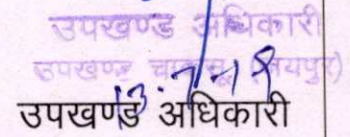 उपखण्ड अधिकारी
उपखण्ड चाकसू (जयपुर)
13.7.18
उपखण्ड अधिकारी